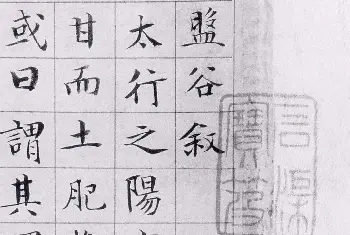 盤谷叙
太行之陽
甘而土肥
或曰謂其